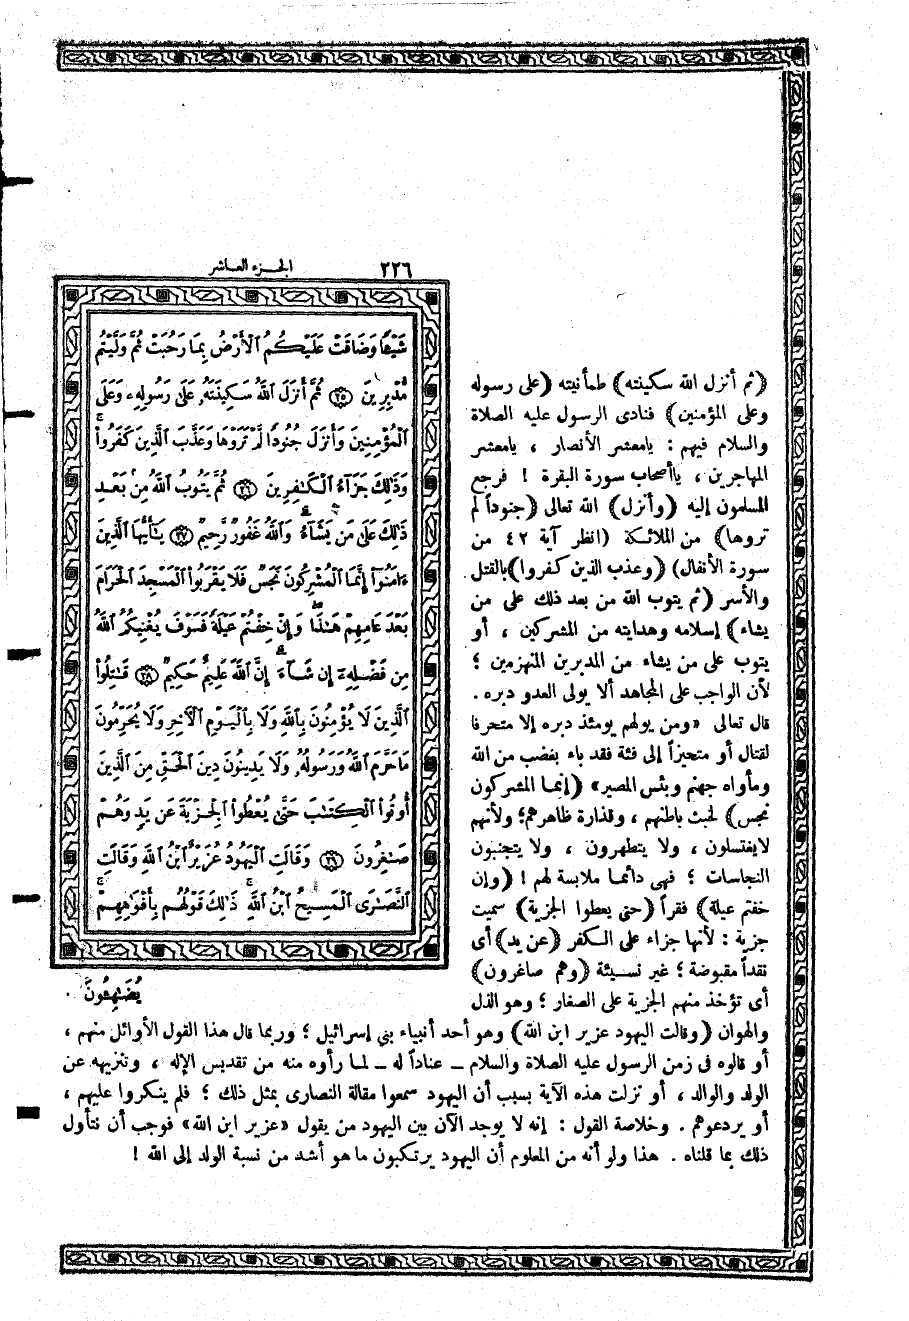 ٢٢٦
الجزء العاشر
شَيْـًٔا وَضَاقَتْ عَلَيْكُمُ ٱلْأَرْضُ بِمَا رَحُبَتْ ثُمَّ وَلَّيْتُم
مُّدْبِرِينَ ﴿٢٥﴾ ثُمَّ أَنزَلَ ٱللَّهُ سَكِينَتَهُۥ عَلَىٰ رَسُولِهِۦ وَعَلَى
ٱلْمُؤْمِنِينَ وَأَنزَلَ جُنُودًا لَّمْ تَرَوْهَا وَعَذَّبَ ٱلَّذِينَ كَفَرُوا۟ۚ
وَذَٰلِكَ جَزَآءُ ٱلْكَـٰفِرِينَ ﴿٢٦﴾ ثُمَّ يَتُوبُ ٱللَّهُ مِنۢ بَعْدِ
ذَٰلِكَ عَلَىٰ مَن يَشَآءُۗ وَٱللَّهُ غَفُورٌ رَّحِيمٌ ﴿٢٧﴾ يَـٰٓأَيُّهَا ٱلَّذِينَ
ءَامَنُوٓا۟ إِنَّمَا ٱلْمُشْرِكُونَ نَجَسٌ فَلَا يَقْرَبُوا۟ ٱلْمَسْجِدَ ٱلْحَرَامَ
بَعْدَ عَامِهِمْ هَـٰذَاۚ وَإِنْ خِفْتُمْ عَيْلَةً فَسَوْفَ يُغْنِيكُمُ ٱللَّهُ
مِن فَضْلِهِۦٓ إِن شَآءَۚ إِنَّ ٱللَّهَ عَلِيمٌ حَكِيمٌ ﴿٢٨﴾ قَـٰتِلُوا۟
ٱلَّذِينَ لَا يُؤْمِنُونَ بِٱللَّهِ وَلَا بِٱلْيَوْمِ ٱلْـَٔاخِرِ وَلَا يُحَرِّمُونَ
مَا حَرَّمَ ٱللَّهُ وَرَسُولُهُۥ وَلَا يَدِينُونَ دِينَ ٱلْحَقِّ مِنَ ٱلَّذِينَ
أُوتُوا۟ ٱلْكِتَـٰبَ حَتَّىٰ يُعْطُوا۟ ٱلْجِزْيَةَ عَن يَدٍ وَهُمْ
صَـٰغِرُونَ ﴿٢٩﴾ وَقَالَتِ ٱلْيَهُودُ عُزَيْرٌ ٱبْنُ ٱللَّهِ وَقَالَتِ
ٱلنَّصَـٰرَى ٱلْمَسِيحُ ٱبْنُ ٱللَّهِۖ ذَٰلِكَ قَوْلُهُم بِأَفْوَٰهِهِمْۖ
يُضَـٰهِـُٔونَ
(ثم أنزل الله سكينته) طمأنيته (على رسوله
وعلى المؤمنين) فنادى الرسول عليه الصلاة
والسلام فيهم : يامعشر الأنصار ، يامعشر
المهاجرين ، ياأصحاب سورة البقرة ! فرجع
المسلمون إليه (وأنزل) الله تعالى (جنوداً لم
تروها) من الملائكة (انظر آية ٤٢ من
سورة الأنفال) (وعذب الذين كفروا) بالقتل
والأسر (ثم يتوب الله من بعد ذلك على من
يشاء) إسلامه وهدايته من المشركين ، أو
يتوب على من يشاء من المدبرين المنهزمين ؛
لأن الواجب على المجاهد ألا يولى العدو دبره .
قال تعالى «ومن يولهم يومئذ دبره إلا متحرفا
لقتال أو متحيزاً إلى فئة فقد باء بغضب من الله
ومأواه جهنم وبئس المصير» (إنما المشركون
نجس) لخبث باطنهم ، وقذارة ظاهرهم؛ ولأنهم
لايغتسلون ، ولا يتطهرون ، ولا يتجنبون
النجاسات ؛ فهى دائما ملابسة لهم ! (وإن
خفتم عيلة) فقراً (حتى يعطوا الجزية) سميت
جزية : لأنها جزاء على الكفر (عن يد) أى
نقداً مقبوضة ؛ غير نسيئة (وهم صاغرون)
أى تؤخذ منهم الجزية على الصغار ؛ وهو الذل
والهوان (وقالت اليهود عزير ابن الله) وهو أحد أنبياء بنى إسرائيل ؛ وربما قال هذا القول الأوائل منهم ،
أو قالوه فى زمن الرسول عليه الصلاة والسلام – عناداً له – لما رأوه منه من تقديس الإله ، وتنزيهه عن
الولد والوالد ، أو نزلت هذه الآية بسبب أن اليهود سمعوا مقالة النصارى بمثل ذلك ؛ فلم ينكروا عليهم ،
أو يردعوهم . وخلاصة القول : إنه لا يوجد الآن بين اليهود من يقول «عزير ابن الله» فوجب أن نتأول
ذلك بما قلناه . هذا ولو أنه من المعلوم أن اليهود يرتكبون ما هو أشد من نسبة الولد إلى الله !